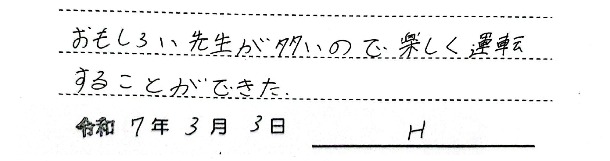 おもしろい先生が多いので楽しく運転
することができた.
令和 7年 3月 3日 H